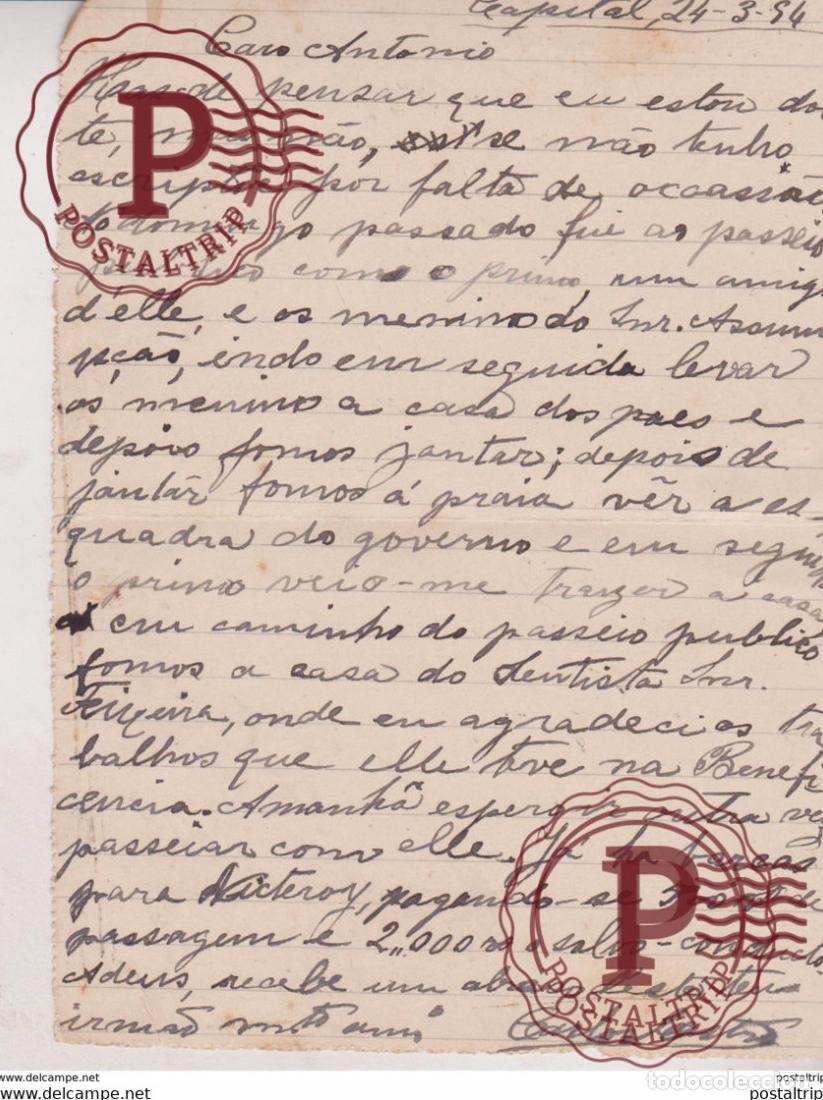 Capital, 24-3-94
Caro Antonio
Has de pensar que eu estou doen
te, mas não, se não tenho
escripto por falta de occassião
No domingo passado fui ao passeio
com o primo, um amigo
d'elle, e os menino do Snr. Assum
pção, indo em seguida levar
os menino a casa dos paes e
depois fomos jantar; depois de
jantar fomos á praia vêr a es-
quadra do governo e em segui
o primo veio-me trazer a casa
em caminho do passeio publico
fomos a casa do dentista Snr.
Teixeira, onde eu agradeci os tra
balhos que elle teve na Benefi
cencia. Amanhã espero ir outra vez
passeiar com elle. Já ha barcas
para Nicteroy, pagando-se de
passagem e 2,,000 rs o salvo-conducto
Adeus, recebe um abraço deste teu
irmão mto amo
POSTALTRIP
P
POSTALTRIP
P
POSTALTRIP
todocoleccion
www.delcampe.net
postaltrip
www.delcampe.net
postaltrip